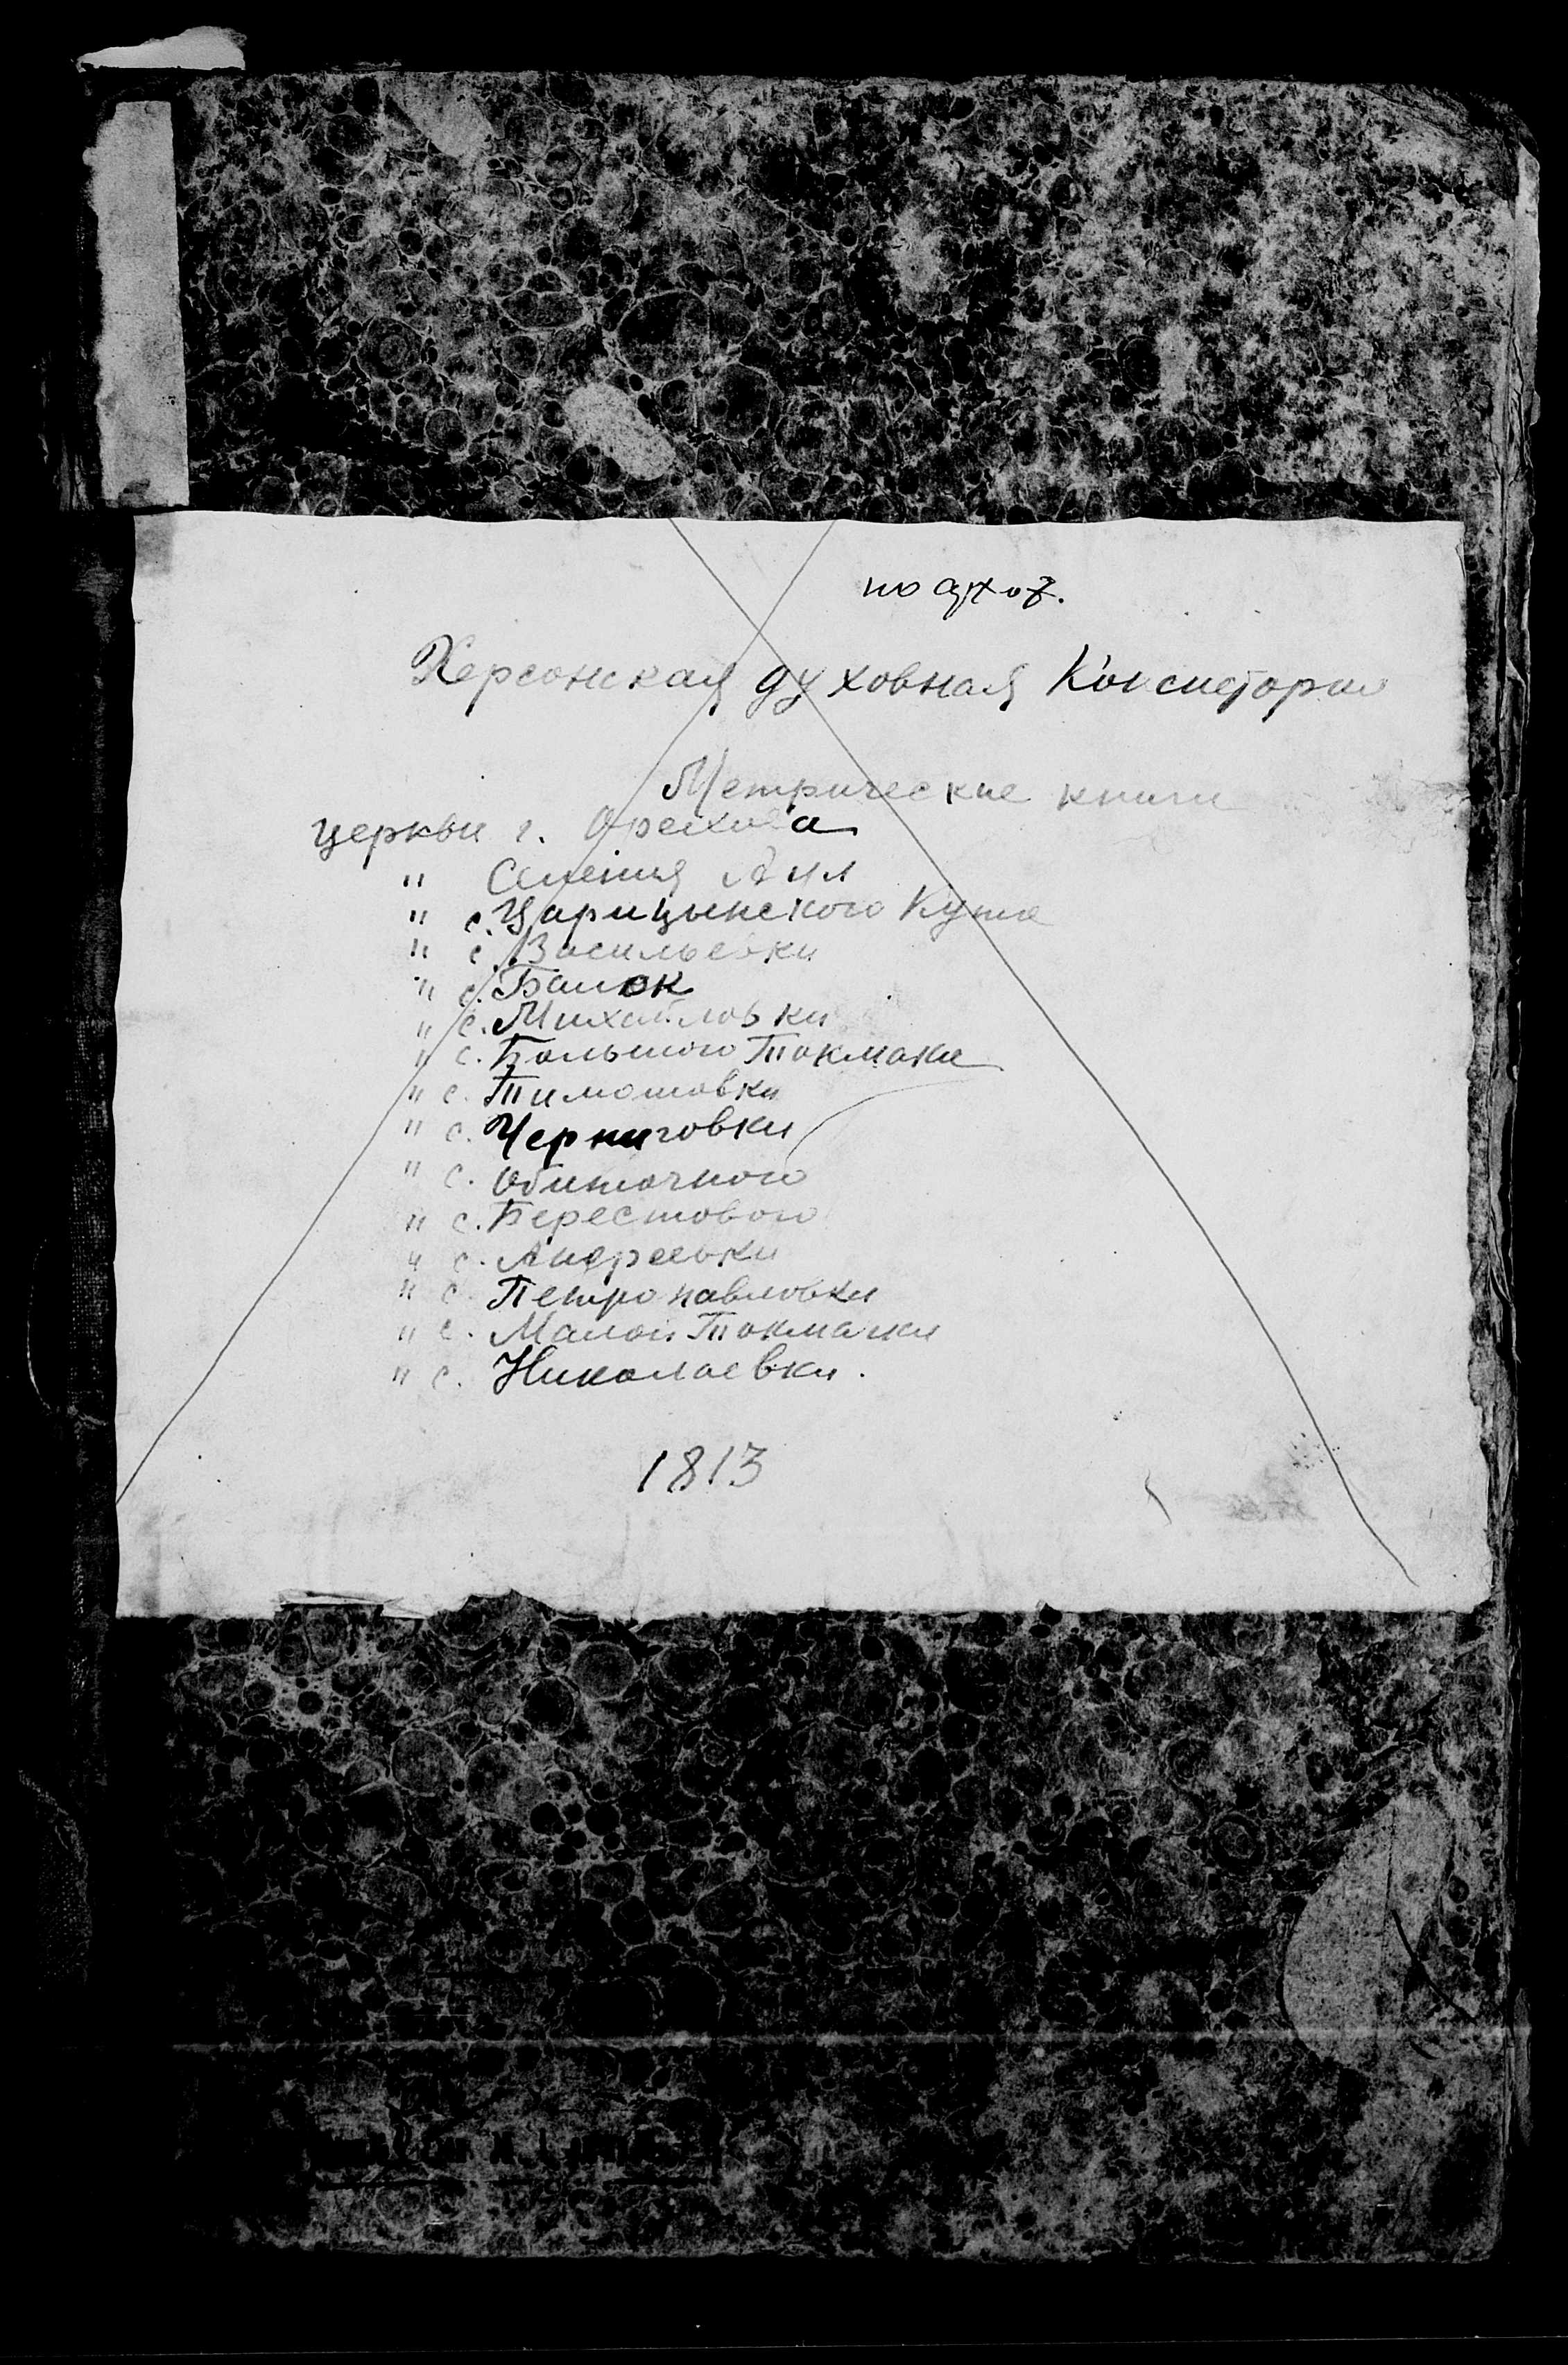 Херсонская духовная Консистория
Метрические книги
церкви г. Орехова
" Селения
" с. Царицынского Кута
" с. Васильевки
" с. Балок
" с. Михайловки
" с. Большого Токмака
" с. Тимошовки
" с. Черниговки
" с. Обиточного
" с. Берестового
" с. Андреевки
" с. Петропавловки
" с. Малой Токмачки
" с. Николаевки.
1813